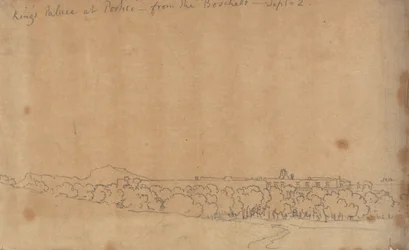 King's Palace at Portici - from the Boschetto - Sept. 2